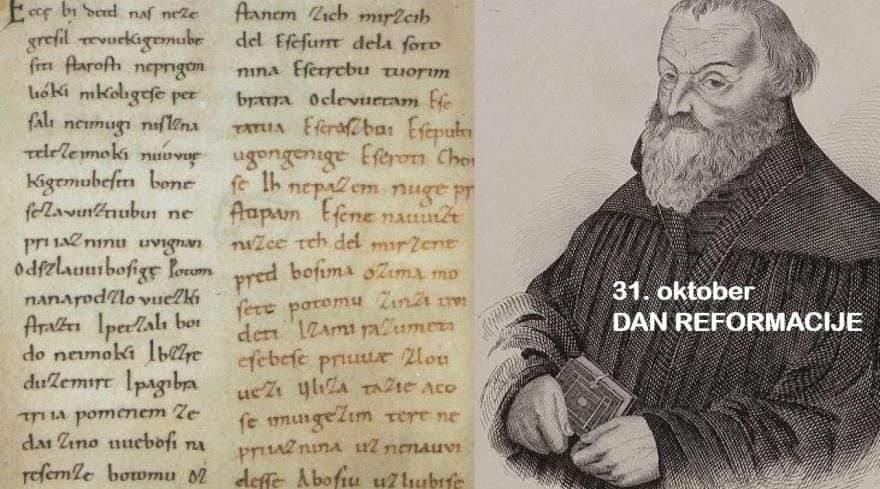 Ecce bi detd naſ neze
greſil tevuekigemube
ſiti ſtaroſti neprigem
lióki nikoligeſe pet
ſali neimugi niſlzna
teleZeimoki nuúvvę
kigemubeſiti bone
ſeZavuiztiubui ne
priiaZninu uvignan
Odſzlauuiboſige Potom
nanarodZlovueZki
ſtraZti IpetZali boi
do neimoki IbZZre
duZemirt Ipagibra
triia pomenem Ze
dai Zino uuebosi na
reſemZe botomu OZ
ſtanem Zich mirZcih
del Eſeſunt dela ſoto
nina Eſetrebu tuorim
bratra Oclevuetam Eſe
tatua EſeraZboi Eſepulti
ugongenige Eſeroti Choi
ſe Ih nepaZem nuge pr
ſtupam Eſene nauuiZt
niZce teh del mirZene
pred boſima oZima mo
ſete potomu ZinZi uvi
deti IZami raZumeti
eſebeſe priuuæ Zlou
ueZi UliZa taZie aco
ſe imuigeZim tere ne
priiaZnina uZnenauvi
deſſe Aboſiu uZliubiſe
31. oktober
DAN REFORMACIJE